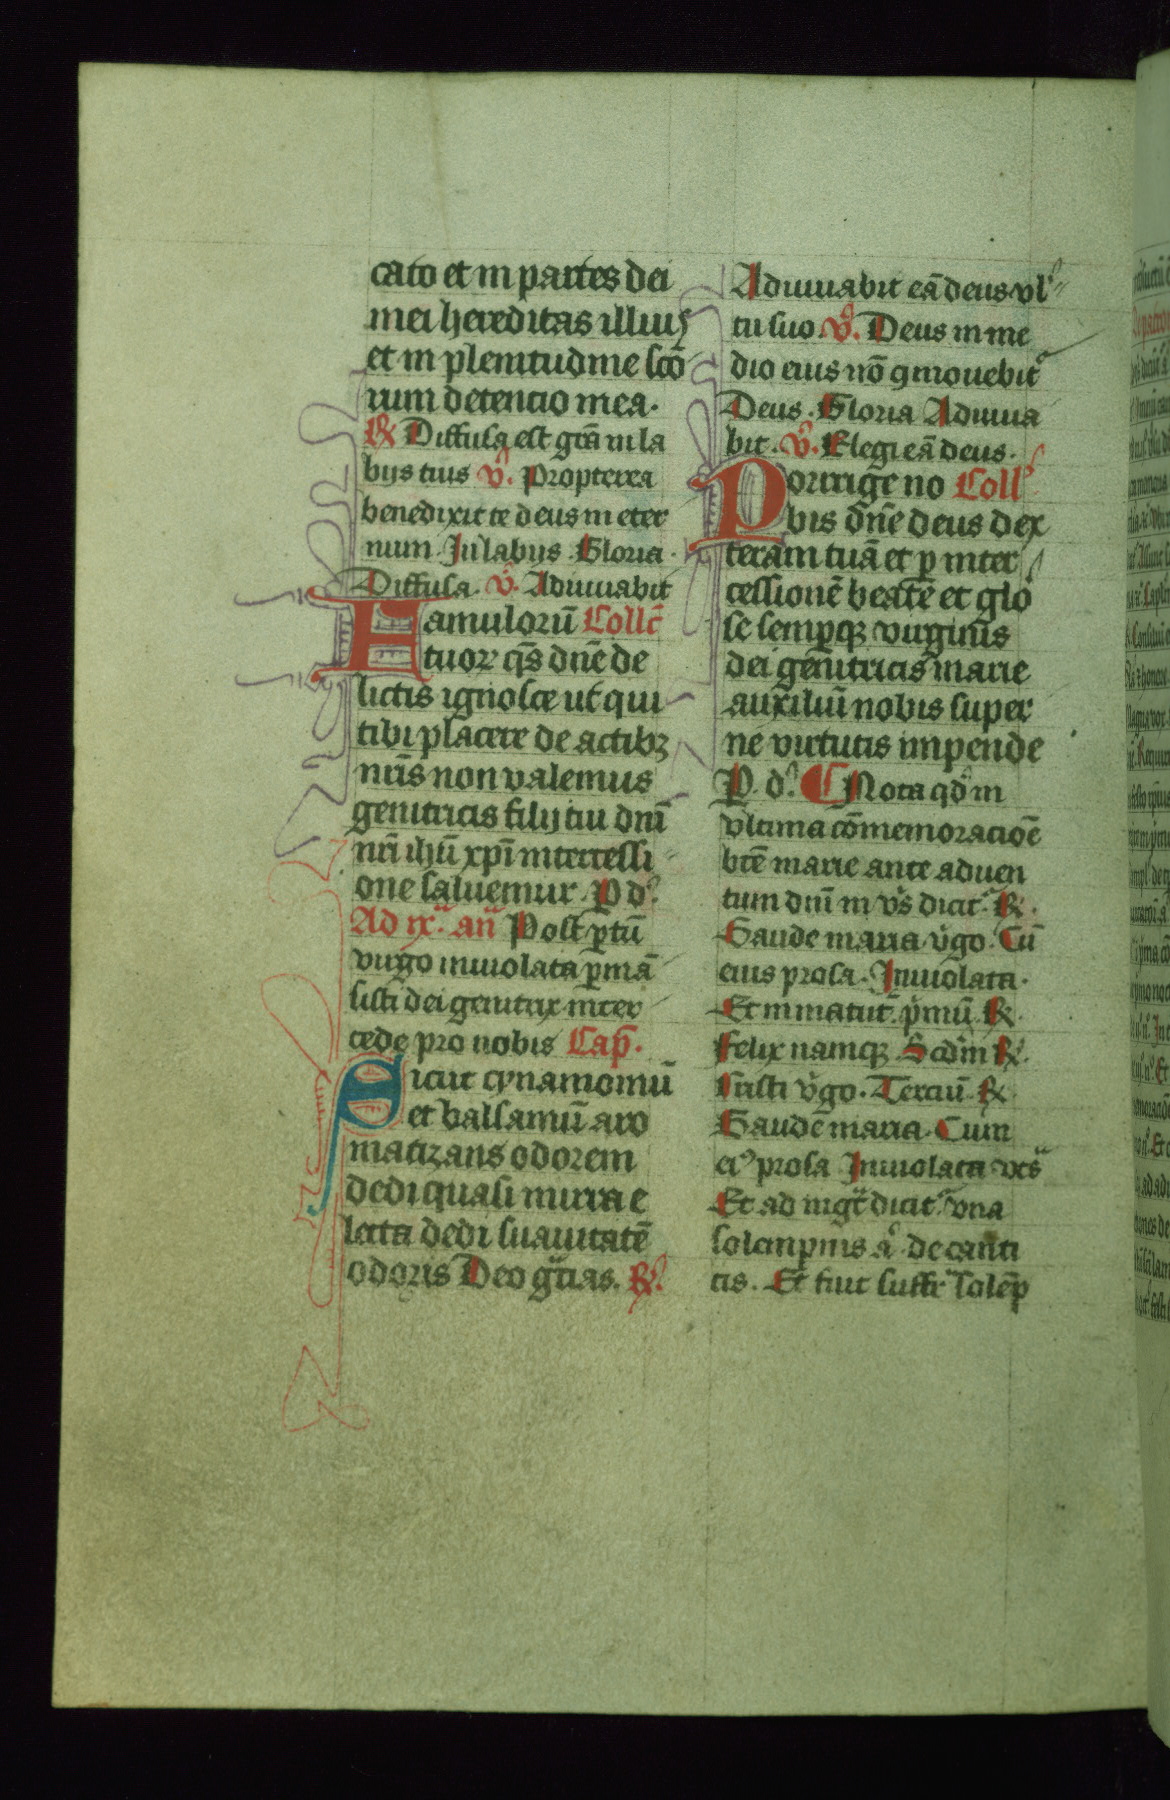 cato et in partes dei
mei hereditas illius
et in plenitudine scō
rum detencio mea.
℟ Diffusa est grā in la
bijs tuis v̊. Propterea
benedixit te deus in eter
num. In labijs. Gloria.
Diffusa. v̊. Adiuuabit
Famulorū Collc̄
tuor qs̄ dn̄e de
lictis ignosce ut qui
tibi placere de actibꝫ
nr̄is non valemus
genitricis filij tui dn̄i
nr̄i ihū xpī intercessi
one saluemur. P d.̉
Ad ix. an̄ Post ꝑtū
virgo inuiolata ꝑmā
sisti dei genitrix inter
cede pro nobis Cap̄.
Sicut cynamomū
et balsamū aro
matizans odorem
dedi quasi mirra e
lecta dedi suauitatē
odoris Deo gr̄as. ℟.
Adiuuabit eā deus vl
tu suo. v̊. Deus in me
dio eius nō ꝯmouebit᷑
Deus. Gloria Adiuua
bit. v̊. Elegi eā deus.
Porrige no Coll̉
bis dn̄e deus dex
teram tuā et ꝑ inter
cessionē beate et glo
se sempꝫ virginis
dei genitricis marie
auxiliū nobis super
ne virtutis impende
P. d.̉ ¶ Nota qd̉ in
vltima cōmemoracioē
btē marie ante aduen
tum dn̄i in vs̄ dicit᷑ ℟.
Gaude maria v̉go. Cū
eius prosa. Inuiolata.
Et in matut̄. p̉mū. ℟.
Felix namqꝫ. Scdm̄ ℟.
Sūsti v̉go. Terciū ℟.
Gaudē maria. Cum
eiꝰ prosa Inuiolata
Et ad mgt̄ dicit᷑ vna
solempnis a̔. de canti
cis. Et fiūt suffr̄ solēp